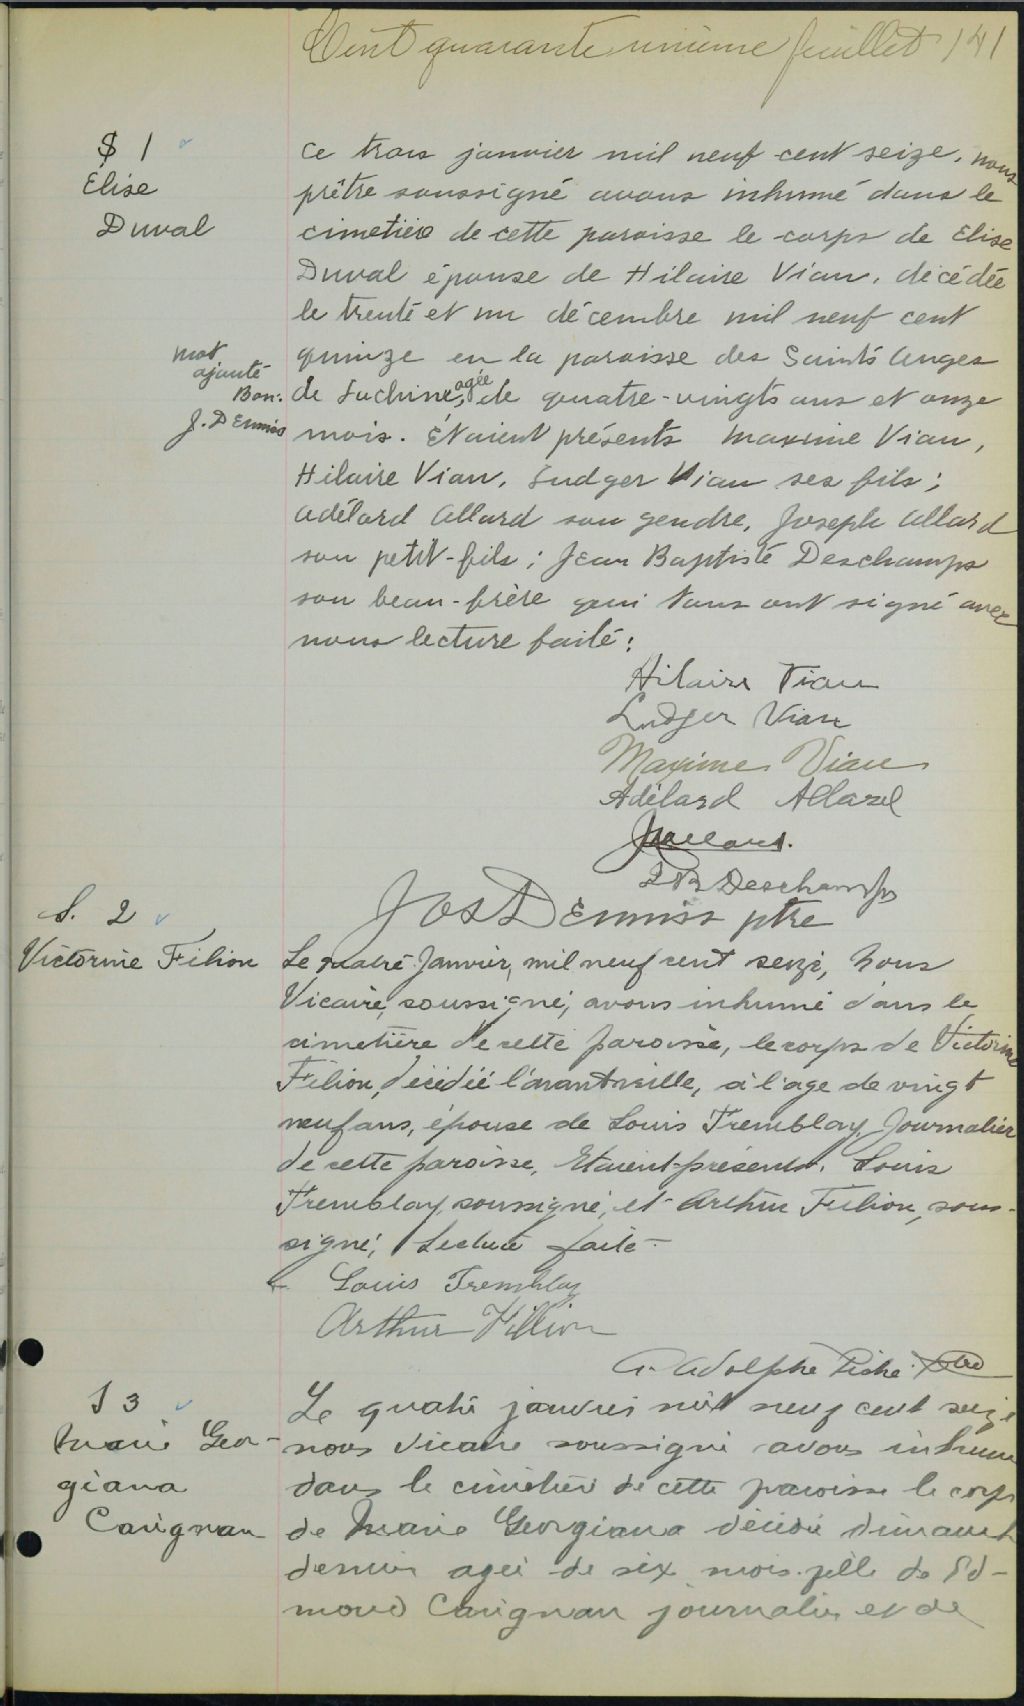 Cent quarante unième feuillet 141
S 1
Elise
Duval
Ce trois janvier mil neuf cent seize, nous
prêtre soussigné avons inhumé dans le
cimetière de cette paroisse le corps de Elise
Duval épouse de Hilaire Viau, décédée
le trente et un décembre mil neuf cent
quinze en la paroisse des Saints Anges
mot
ajouté
Bon.
J. Dennis
de Lachine, agée de quatre-vingts ans et onze
mois. Étaient présents Maxime Viau,
Hilaire Viau, Ludger Viau ses fils;
Adélard Allard son gendre, Joseph Allard
son petit-fils; Jean Baptiste Deschamps
son beau-frère qui tous ont signé avec
nous lecture faite:
Hilaire Viau
Ludger Viau
Maxime Viau
Adélard Allard
J B Deschamps
Jos Dennis ptre
S. 2
Victorine Filion
Le quatre Janvier, mil neuf cent seize, Nous
Vicaire, soussigné, avons inhumé dans le
cimetière de cette paroisse, le corps de Victorine
Filion, décédée l'avant veille, à l'age de vingt
neuf ans, épouse de Louis Tremblay, Journalier
de cette paroisse, Etaient présents. Louis
Tremblay soussigné, et Arthur Filion, sous-
signé, Lecture faite.
Louis Tremblay
Arthur Fillion
Adolphe Piché Ptre
S 3
Marie Geor-
giana
Carignan
Le quatre janvier mil neuf cent seize
nous vicaire soussigné avons inhumé
dans le cimetière de cette paroisse le corps
de Marie Georgiana décédée dimanche
dernier agée de six mois fille de Ed-
mond Carignan journalier et de